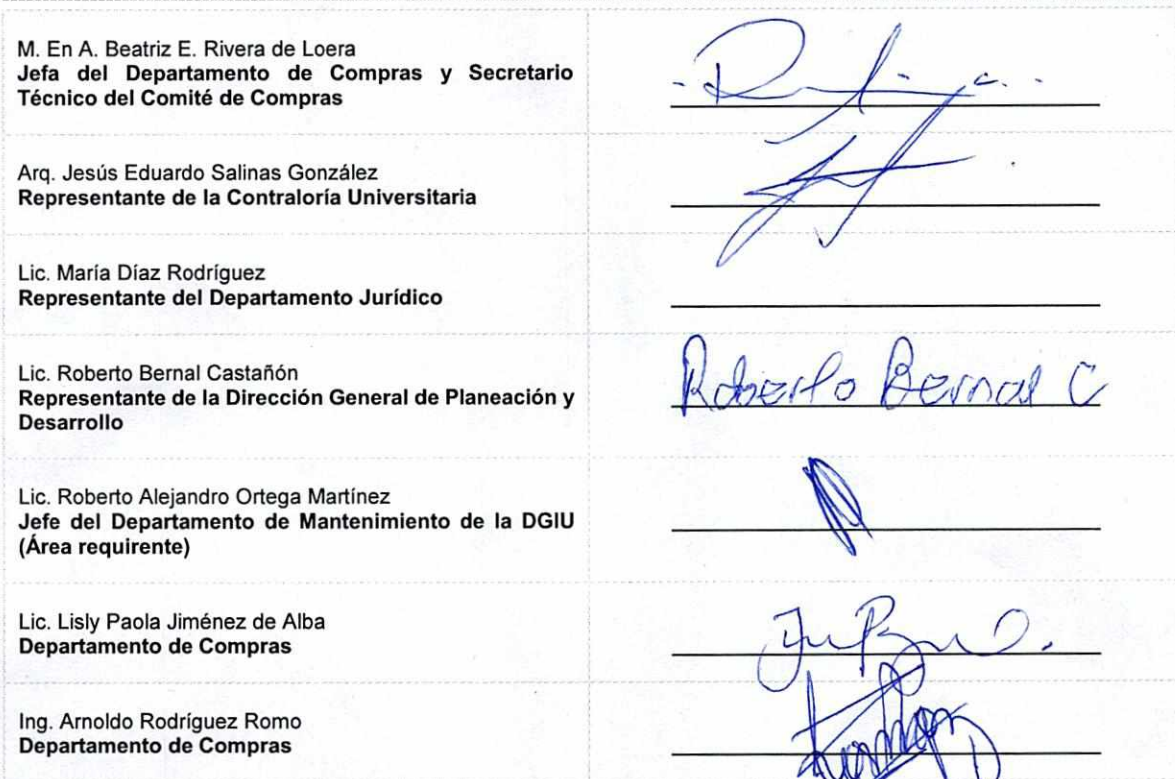 M. En A. Beatriz E. Rivera de Loera
Jefa del Departamento de Compras y Secretario
Técnico del Comité de Compras
Arq. Jesús Eduardo Salinas González
Representante de la Contraloría Universitaria
Lic. María Díaz Rodríguez
Representante del Departamento Jurídico
Lic. Roberto Bernal Castañón
Representante de la Dirección General de Planeación y
Desarrollo
Roberto Bernal C
Lic. Roberto Alejandro Ortega Martínez
Jefe del Departamento de Mantenimiento de la DGIU
(Área requirente)
Lic. Lisly Paola Jiménez de Alba
Departamento de Compras
Ing. Arnoldo Rodríguez Romo
Departamento de Compras